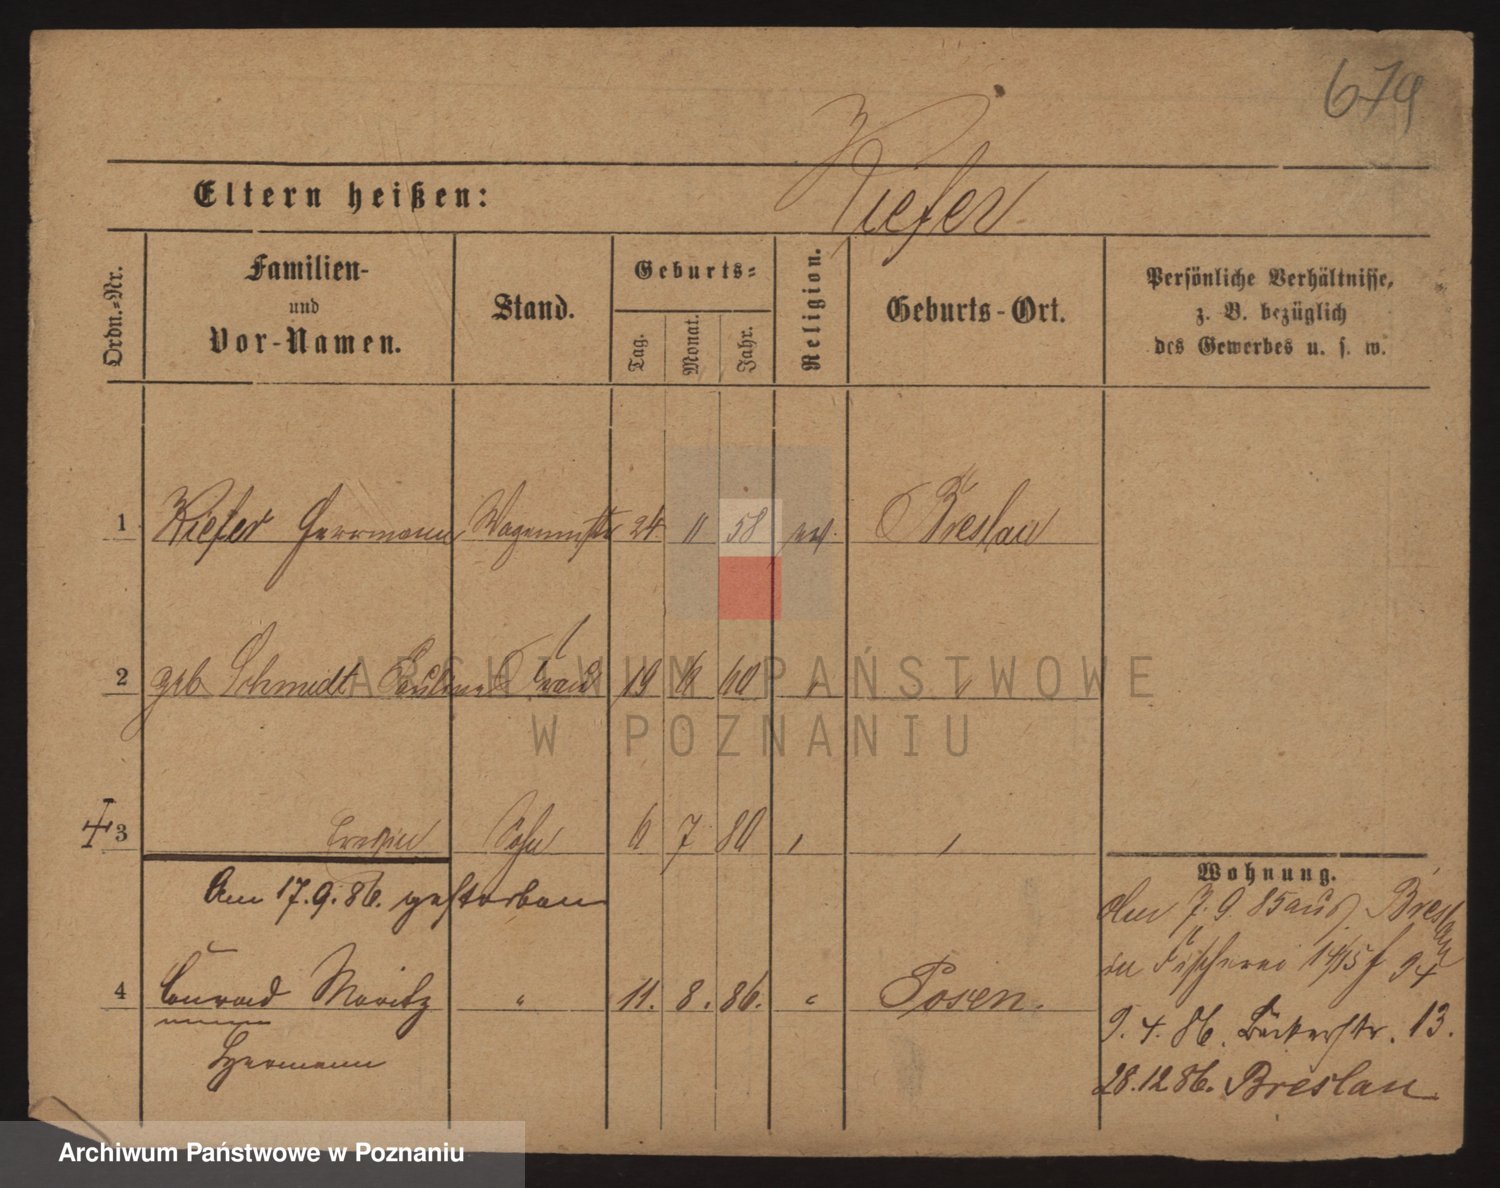 679
Kiefer
Eltern heißen:
Ordn.-Nr.
Familien-
und
Vor-Namen.
Stand.
Geburts-
Tag.
Monat.
Jahr.
Religion.
Geburts-Ort.
Persönliche Verhältnisse,
z. B. bezüglich
des Gewerbes u. s. w.
1 Kiefer Herrmann 24 11 58 Breslau
2 geb Schmidt Pauline Frau 19 60 "
3 Sohn 6 7 80
Am 17.9.86. gestorben
4 Conrad Moritz " 11. 8. 86. " Posen.
Hermann
Wohnung.
Am 7.9.85 aus Breslau
in Fischerei 14/15
9.4.86. Bäckerstr. 13.
28.12.86. Breslau
ARCHIWUM PAŃSTWOWE
W POZNANIU
Archiwum Państwowe w Poznaniu